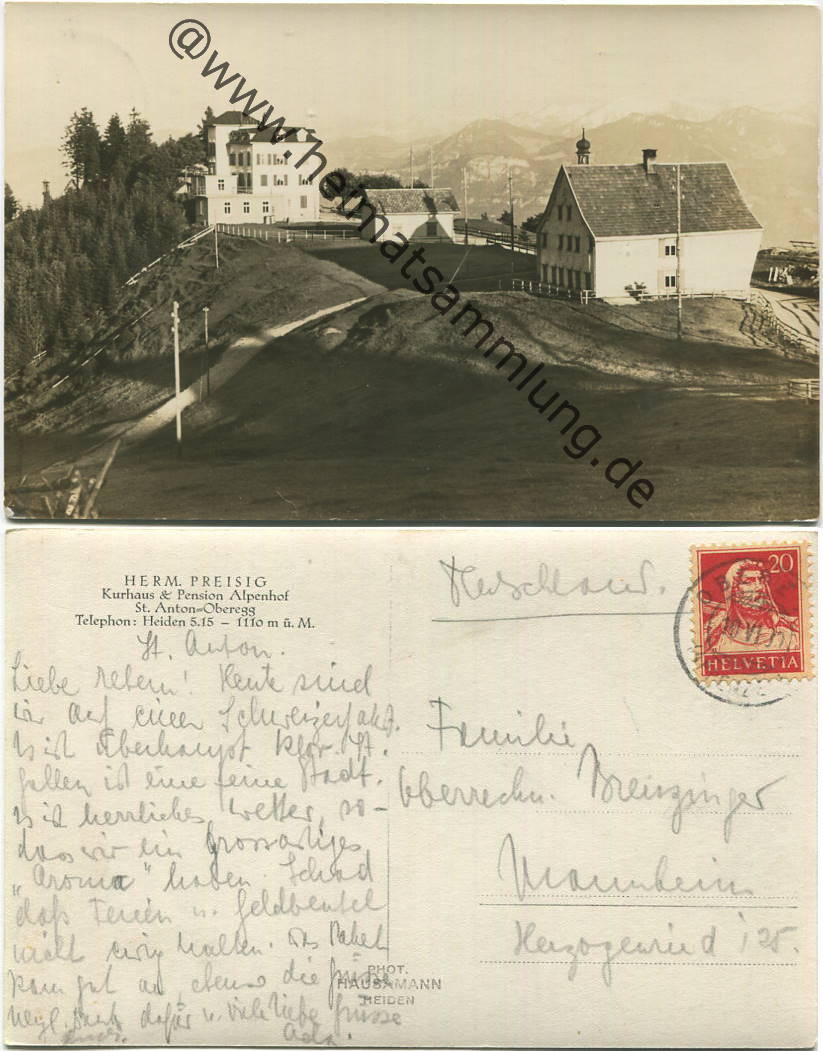 @www.heimatsammlung.de
HERM. PREISIG
Kurhaus & Pension Alpenhof
St. Anton=Oberegg
Telephon: Heiden 5.15 – 1110 m ü. M.
St. Anton.
Liebe Eltern! Heute sind
wir auf einer Schweizerfahrt.
Es ist überhaupt klar. St.
Gallen ist eine feine Stadt.
Es ist herrliches Wetter, so-
dass wir ein grossartiges
„Aroma" haben. Schad
daß Ferien u. Geldbeutel
nicht ewig halten. Das Paket
kam gut an, ebenso die Grüsse
Dank dafür u. viele liebe Grüsse
PHOT.
HAUSAMANN
HEIDEN
Deutschland.
20
HELVETIA
Familie
Oberrechn. Brenzinger
Mannheim
Herzogenried 125.